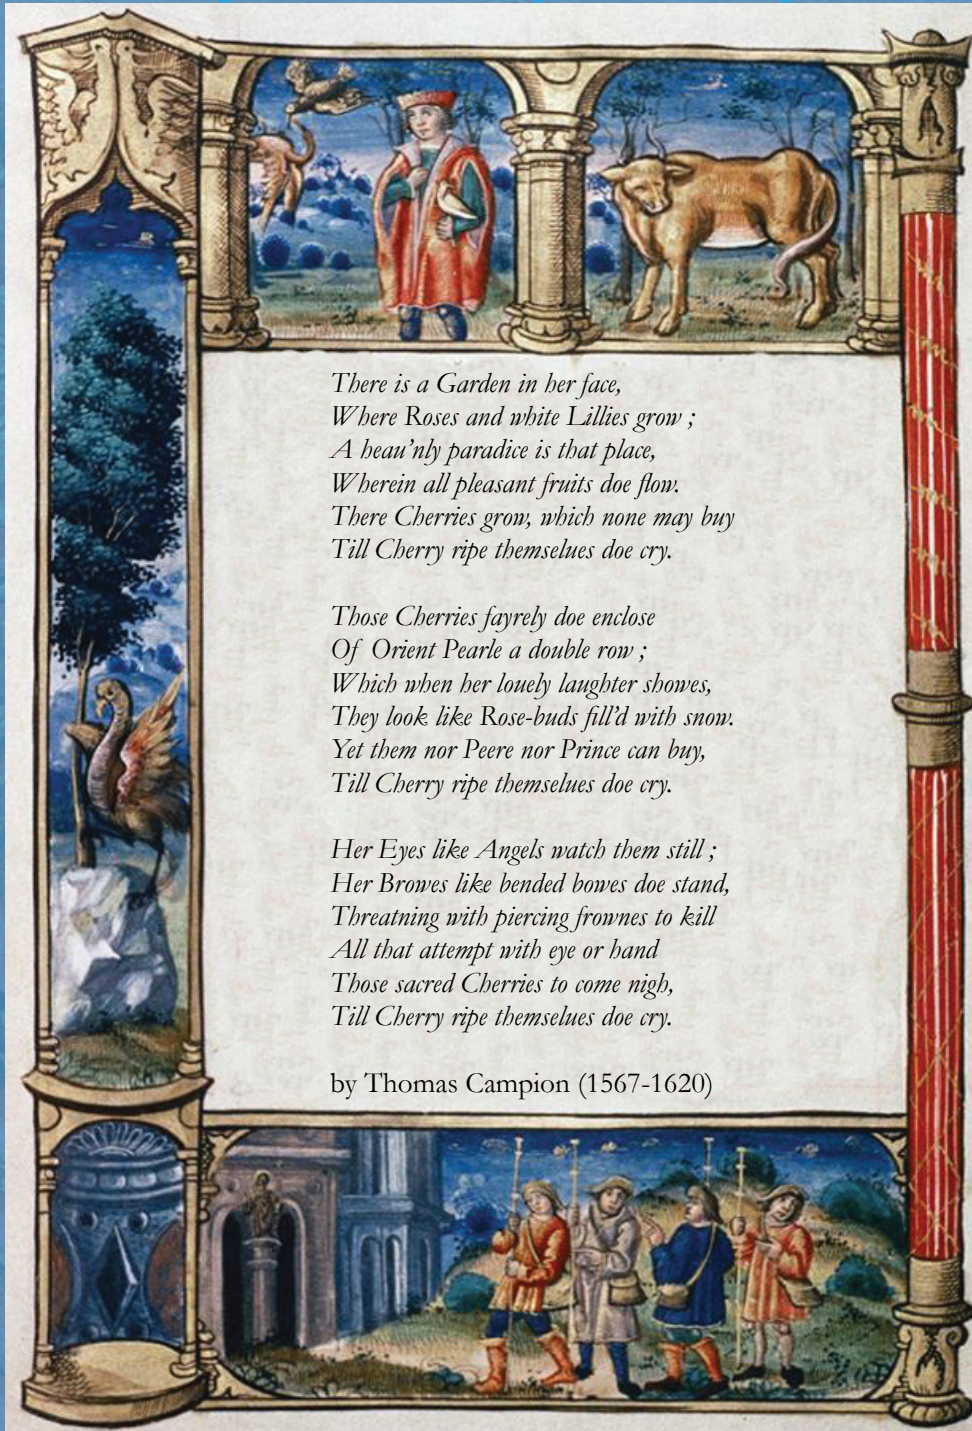 There is a Garden in her face,
Where Roses and white Lillies grow ;
A heau’nly paradice is that place,
Wherein all pleasant fruits doe flow.
There Cherries grow, which none may buy
Till Cherry ripe themselues doe cry.

Those Cherries fayrely doe enclose
Of Orient Pearle a double row ;
Which when her louely laughter showes,
They look like Rose-buds fill’d with snow.
Yet them nor Peere nor Prince can buy,
Till Cherry ripe themselues doe cry.

Her Eyes like Angels watch them still ;
Her Browes like bended bowes doe stand,
Threatning with piercing frownes to kill
All that attempt with eye or hand
Those sacred Cherries to come nigh,
Till Cherry ripe themselues doe cry.

by Thomas Campion (1567-1620)